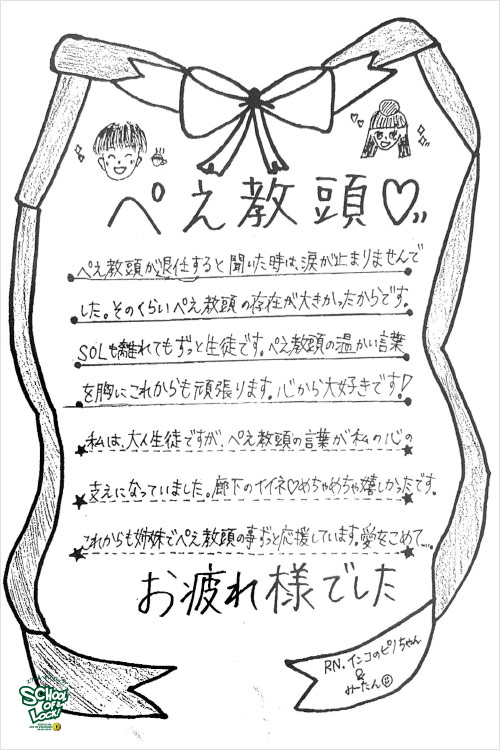 ぺえ教頭♡〃
ぺえ教頭が退任すると聞いた時は、涙が止まりませんで
した。そのくらいぺえ教頭の存在が大きかったからです。
SOLも離れてもずっと生徒です。ぺえ教頭の温かい言葉
を胸にこれからも頑張ります。心から大好きです!
私は、大人生徒ですが、ぺえ教頭の言葉が私の心の
支えになっていました。廊下のイイネ♡めちゃめちゃ嬉しかったです。
これからも姉妹でぺえ教頭の事ずっと応援しています。愛をこめて....
お疲れ様でした
RN.インコのピノちゃん
&
みーたん
SCHOOL
OF
LOCK!